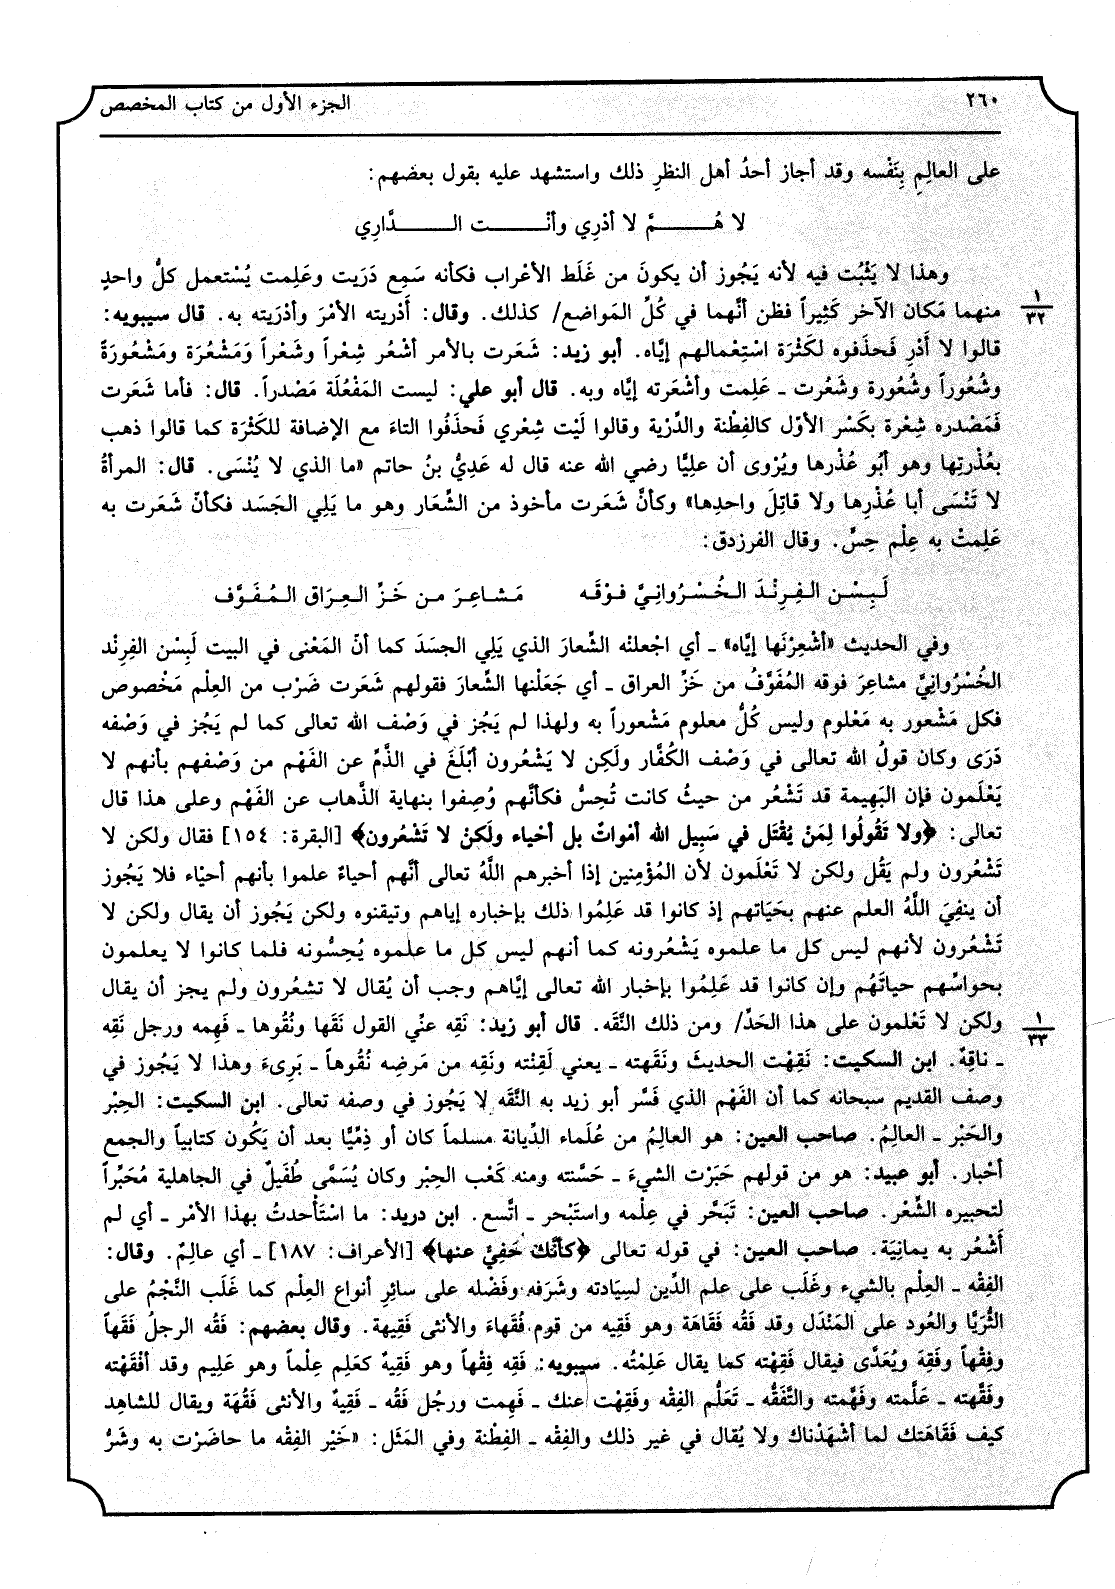 ٢٦٠ الجزء الأول من كتاب المخصص
على العالِمِ بِنَفْسه وقد أجاز أحدُ أهل النظرِ ذلك واستشهد عليه بقول بعضهم:
لا هُـــــمَّ لا أدْرِي وأنْـــــت الـــــدَّارِي
وهذا لا يَثْبُت فيه لأنه يَجُوز أن يكونَ من غَلَط الأعْراب فكأنه سَمِع دَرَيت وعَلِمت يُسْتعمل كلُّ واحدٍ
١
٣٢
منهما مَكان الآخر كَثِيراً فظن أنَّهما في كُلِّ المَواضع/ كذلك. وقال: أَدْريته الأمْرَ وأدْرَيته به. قال سيبويه:
قالوا لا أَدْرِ فَحذَفوه لكَثْرَة اسْتِعْمالهم إيَّاه. أبو زيد: شَعَرت بالأمر أشْعُر شِعْراً وشَعْراً وَمَشْعُرَة ومَشْعُورَةً
وشُعُوراً وشُعُورة وشَعُرت ـ عَلِمت وأشْعَرته إيَّاه وبه. قال أبو علي: ليست المَفْعُلَة مَصْدراً. قال: فأما شَعَرت
فَمَصْدره شِعْرة بكَسْر الأوّل كالفِطْنة والدِّرْية وقالوا لَيْت شِعْري فَحذَفُوا التاءَ مع الإضافة للكَثْرَة كما قالوا ذهب
بعُذْرتِها وهو أبُو عُذْرها ويُرْوى أن علِيًّا رضي الله عنه قال له عَدِيُّ بنُ حاتم «ما الذي لا يُنْسَى. قال: المرأةُ
لا تَنْسَى أبا عُذْرِها ولا قاتِلَ واحدِها» وكأنَّ شَعَرت مأخوذ من الشِّعَار وهو ما يَلِي الجَسَد فكأنّ شَعَرت به
عَلِمتْ به عِلْم حِسَّ. وقال الفرزدق:
لَبِسْن الفِرِنْدَ الخُسْرُوانِيَّ فوْقَه مَشاعِرَ من خَزِّ العِرَاق المُفَوَّف
وفي الحديث «أشْعِرْنَها إيَّاه» ـ أي اجْعلنْه الشِّعارَ الذي يَلِي الجسَدَ كما أنّ المَعْنى في البيت لَبِسْن الفِرِنْد
الخُسْرُوانِيَّ مشاعِرَ فوقه المُفَوَّفُ من خَزِّ العراق ـ أي جَعَلْنها الشِّعارَ فقولهم شَعَرت ضَرْب من العِلْم مَخْصوص
فكل مَشْعور به مَعْلوم وليس كُلُّ معلوم مَشْعوراً به ولهذا لم يَجُز في وَصْف الله تعالى كما لم يَجُز في وَصْفه
دَرَى وكان قولُ الله تعالى في وَصْف الكُفَّار ولَكِن لا يَشْعُرون أبْلَغَ في الذَّمِّ عن الفَهْم من وَصْفهم بأنهم لا
يَعْلَمون فإن البَهِيمة قد تَشْعُر من حيثُ كانت تُحِسُّ فكأنَّهم وُصِفوا بنهاية الذَّهاب عن الفَهْم وعلى هذا قال
تعالى: ﴿ولا تَقُولُوا لِمَنْ يُقْتَل في سَبِيل الله أمْواتٌ بل أحْياء ولَكنْ لا تَشْعُرون﴾ [البقرة: ١٥٤] فقال ولكن لا
تَشْعُرون ولم يَقُل ولكن لا تَعْلَمون لأن المُؤْمِنين إذا أخبرهم اللَّهُ تعالى أنَّهم أحياءٌ علموا بأنهم أحيْاء فلا يَجُوز
أن ينفِيَ اللَّهُ العلم عنهم بحَيَاتهم إذ كانوا قد عَلِمُوا ذلك بإخباره إياهم وتيقنوه ولكن يَجُوز أن يقال ولكن لا
تَشْعُرون لأنهم ليس كل ما علموه يَشْعُرونه كما أنهم ليس كل ما علموه يُحِسُّونه فلما كانوا لا يعلمون
بحواسِّهم حياتَهُم وإن كانوا قد عَلِمُوا بإخبار الله تعالى إيَّاهم وجب أن يُقال لا تشعُرون ولم يجز أن يقال
١
٣٣
ولكن لا تَعْلمون على هذا الحَدِّ/ ومن ذلك النَّقَه. قال أبو زيد: نَقِه عنِّي القول نَقَها ونُقُوها ـ فَهِمه ورجل نَقِه
ـ ناقِهٌ. ابن السكيت: نَقِهْت الحديثَ ونَقَهته ـ يعني لَقِنْته ونَقِه من مَرضِه نُقُوهاً ـ بَرِىءَ وهذا لا يَجُوز في
وصف القديم سبحانه كما أن الفَهْم الذي فَسَّر أبو زيد به النَّقَه لا يَجُوز في وصفه تعالى. ابن السكيت: الحِبْر
والحَبْر ـ العالِمُ. صاحب العين: هو العالِمُ من عُلَماء الدِّيانة مسلماً كان أو ذِمِّيًّا بعد أن يَكُون كتابياً والجمع
أحْبار. أبو عبيد: هو من قولهم حَبَرْت الشيءَ ـ حَسَّنته ومنه كَعْب الحِبْر وكان يُسَمَّى طُفَيلٌ في الجاهلية مُحَبِّراً
لتحبيره الشِّعْر. صاحب العين: تَبَحَّر في عِلْمه واستَبْحر ـ اتَّسع. ابن دريد: ما اسْتَأْحدتُ بهذا الأمْر ـ أي لم
أشْعُر به يمانِيَة. صاحب العين: في قوله تعالى ﴿كأنَّكَ حَفِيٌّ عنها﴾ [الأعراف: ١٨٧] ـ أي عالِمٌ. وقال:
الفِقْه ـ العِلْم بالشيء وغَلَب على علم الدِّين لسِيَادته وشَرَفه وفَضْله على سائِرِ أنواع العِلْم كما غَلَب النَّجْمُ على
الثُّرَيَّا والعُود على المَنْدَل وقد فَقُه فَقَاهَة وهو فَقِيه من قوم فُقَهاءَ والأنثى فَقِيهة. وقال بعضهم: فَقُه الرجلُ فَقَهاً
وفِقْهاً وفَقِهَ ويُعَدَّى فيقال فَقِهْته كما يقال عَلِمْتُه. سيبويه: فَقِه فِقْهاً وهو فَقِيهٌ كعَلِم عِلْماً وهو عَلِيم وقد أفْقَهْته
وفَقَّهته ـ عَلَّمته وفَهَّمته والتَّفَقُّه ـ تَعَلُّم الفِقْه وفَقِهْت عنك ـ فَهِمت ورجُل فَقُه ـ فَقِيهٌ والأنثى فَقُهَة ويقال للشاهِد
كيف فَقَاهَتك لما أشْهَدْناك ولا يُقال في غير ذلك والفِقْه ـ الفِطْنة وفي المَثَل: «خَيْر الفِقْه ما حاضَرْت به وشَرُّ